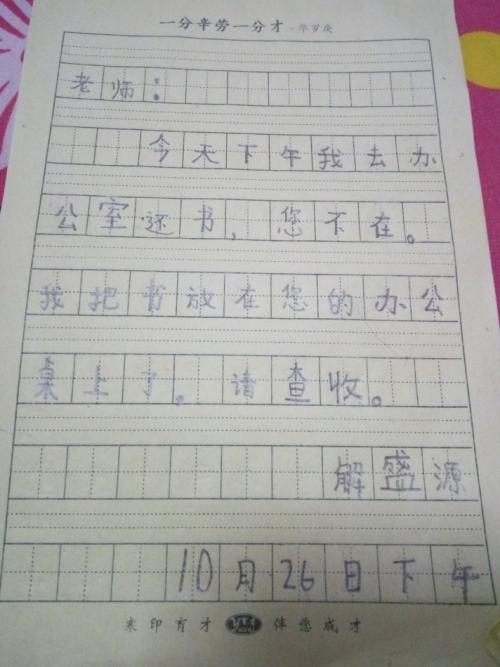 一分辛劳一分才 -华罗庚
老师：
今天下午我去办
公室还书，您不在。
我把书放在您的办公
桌上了。请查收。
解盛源
10月26日下午
来印育才 伴您成才